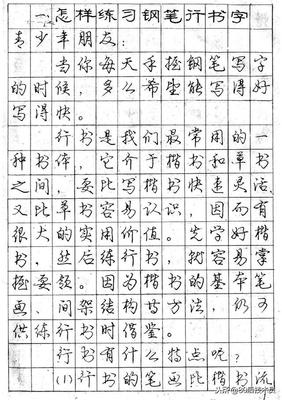 一、怎样练习钢笔行书字
青少年朋友:
当你每天手握钢笔写字
的时候,多么希望能写得好
写得快。
行书是我们最常用的一
种书体,它介于楷书和草书
之间,要比写楷书快速灵活,
又比草书容易认识,因而有
很大的实用价值。先学好楷
书,然后练行书,就容易掌
握要领。因为楷书的基本笔
画、间架结构等方法,仍可
供练行书时借鉴。
行书有什么特点呢?
(1)行书的笔画比楷书流